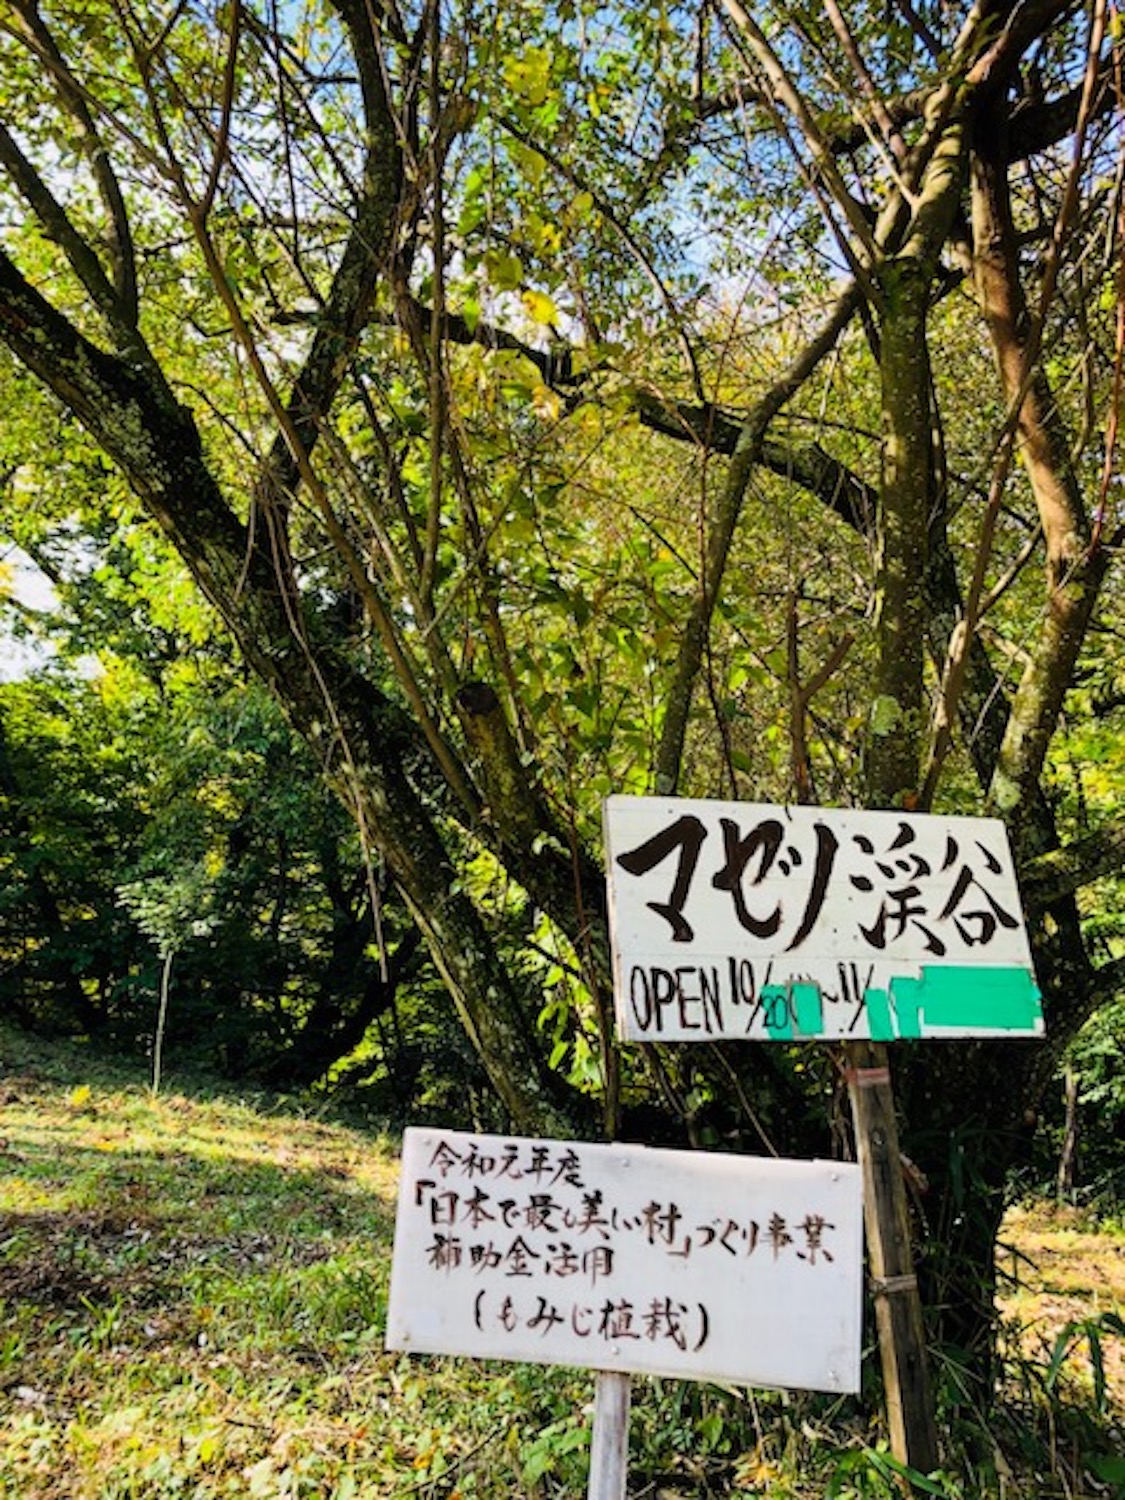 マゼノ渓谷
OPEN 10/20( ~11/
令和元年度
「日本で最も美しい村」づくり事業
補助金活用
(もみじ植栽)